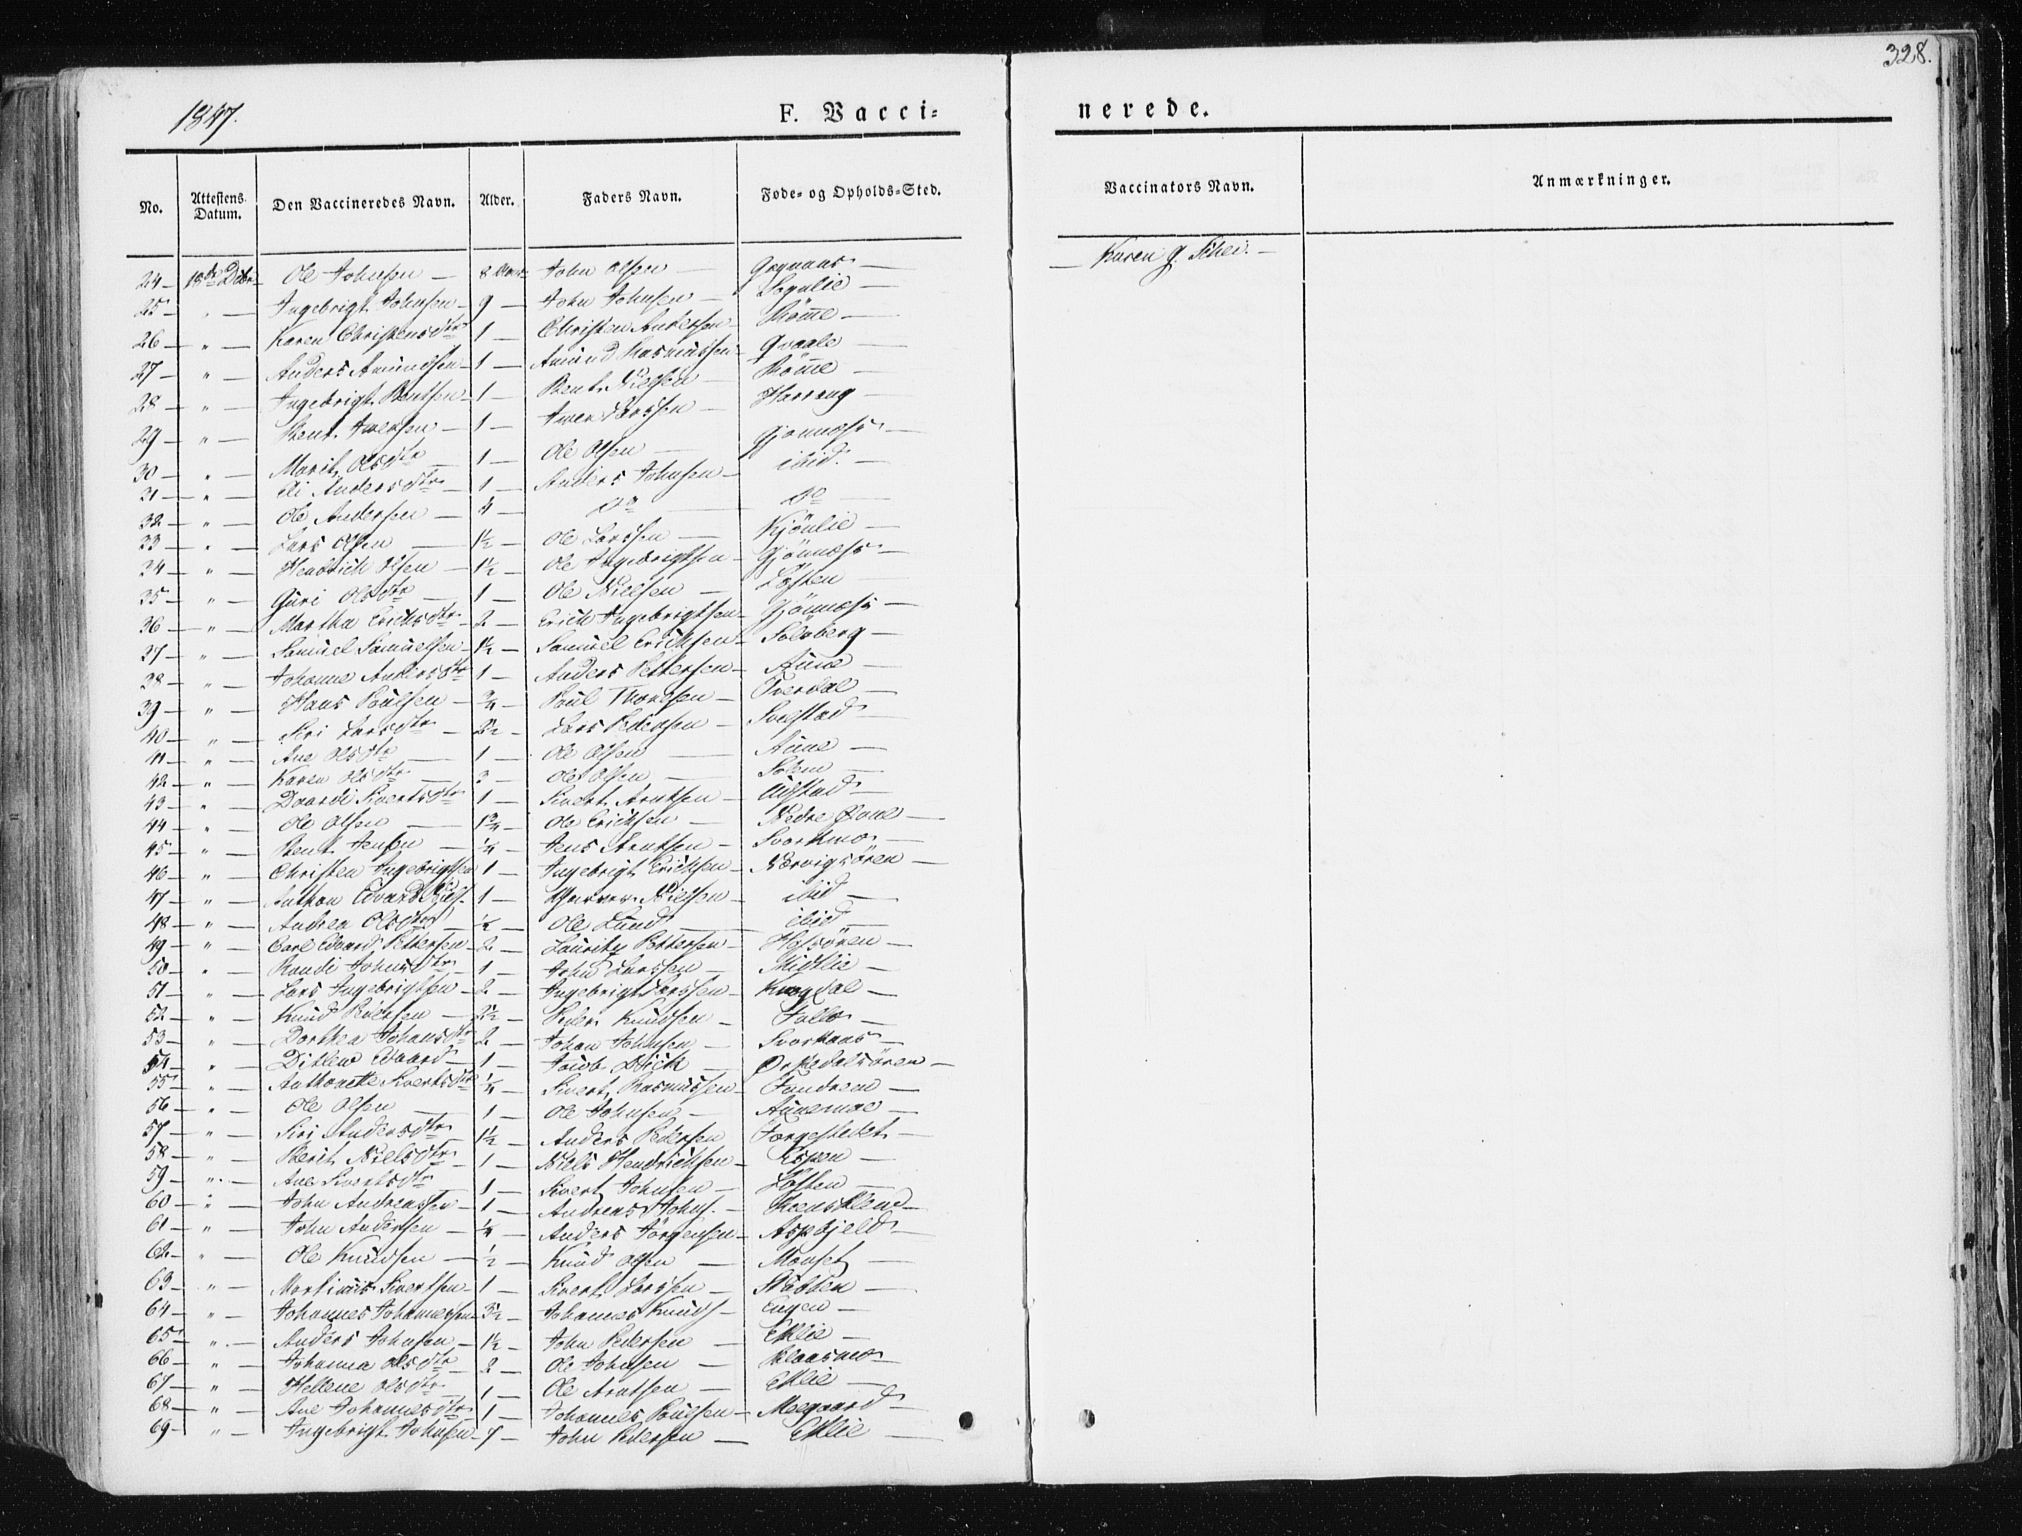 328.
1847.
F. Vacci=
nerede.
No.
Attestens Datum.
Den Vaccineredes Navn.
Alder.
Faders Navn.
Føde= og Opholds=Sted.
Vaccinators Navn.
Anmærkninger.
24 — 18de Decbr — Ole Johnsen — 8 Aar — John Olsen — — Karen G. Schei. —
25 — " — Ingebrigt Johnsen — 9 — John Johnsen — Sognlie —
26 — " — Karen Christensdtr 1 — Christen Andersen — Rømme —
27 — " — Anders Amundsen — 1 — Amund Rasmussen — Qvaale —
28 — " — Ingebrigt Bentsen — 1 — Bent Nielsen — Rømme —
29 — " — Bent Iversen — 1 — Iver Larssen — Harrang —
30 — " — Marit Olsdtr — 1 — Ole Olsen — Gjønnæss —
31 — " — Eli Andersdtr — 1 — Anders Johnsen — ibid. —
32 — " — Ole Andersen — 4 — Do — do —
33 — " — Lars Olsen — 1½ — Ole Larssen — Kjønlie —
34 — " — Hendrich Olsen — 1½ — Ole Ingebrigtsen — Gjønnæss —
35 — " — Guri Olsdtr — 1 — Ole Nielsen — Loften —
36 — " — Martha Erichsdtr — 2 — Erich Ingebrigtsen — Gjønnæss —
37 — " — Samuel Samuelsen — 1½ — Samuel Erichsen — Solberg —
38 — " — Johanne Andersdtr 1 — Anders Pettersen — Aune —
39 — " — Hans Poulsen — ¾ — Poul Thoresen — Tverdal —
40 — " — Siri Larsdtr — 2½ — Lars Pedersen — Solstad —
41 — " — Ane Olsdtr — 1 — Ole Olsen — Aune —
42 — " — Karen Olsdtr — 3 — Ole Olsen — Solem —
43 — " — Daardi Sivertsdtr 1 — Sivert Arntsen — Evjestad —
44 — " — Ole Olsen — 1¾ — Ole Erichsen — Nedre —
45 — " — Bent Jensen — ¼ — Jens Arntsen — Svorkmo —
46 — " — Christen Ingebrigtsen 1 — Ingebrigt Erichsen — Nervigsøren —
47 — " — Anthon Edvard 1 — Nielsen — ibid —
48 — " — Andrea Olsdtr ½ — Ole Lund — ibid —
49 — " — Carl Edvard Pettersen — 2 — Lauritz Pettersen — —
50 — " — Randi Johnsdtr — 1 — John Larssen — Midtlie —
51 — " — Lars Ingebrigtsen — 2 — Ingebrigt Larssen — Krogdal —
52 — " — Knud Pedersen — 2½ — Peder Knudsen — —
53 — " — Dorthea Johansdtr 2 — Johan Johnsen — Svorkaas —
54 — " — Ditlev Edvard — 1 — Jacob — Ørkedalsøren —
55 — " — Anthonette Sivertsdtr ¼ — Sivert Rasmussen — Fandrem —
56 — " — Ole Olsen — 1 — Ole Johnsen — Aunemoe —
57 — " — Siri Andersdtr 1½ — Anders Pedersen — —
58 — " — Berit Nielsdtr 1 — Niels Hendrichsen — Espen —
59 — " — Ane Sivertsdtr 1 — Sivert Johnsen — Loften —
60 — " — John Andreassen — 1 — Andreas Johns. — —
61 — " — John Andersen — ¼ — Anders Jørgensen — Aspbjeld —
62 — " — Ole Knudsen — ½ — Knud Olsen — Monset —
63 — " — Martinus Sivertsen — 1 — Sivert Larssen — Støtten —
64 — " — Johannes Johannessen — 3½ — Johannes Knuds — Engen —
65 — " — Anders Johnsen — 1½ — John Pedersen — Eklie —
66 — " — Johanna Olsdtr — 2 — Ole Johnsen — Klaasmo —
67 — " — Hellene Olsdtr 1 — Ole Arntsen — Eklie —
68 — " — Ane Johannesdtr 1 — Johannes Poulsen — Meegaard —
69 — " — Ingebrigt Johnsen — 7 — John Pedersen — Eklie —